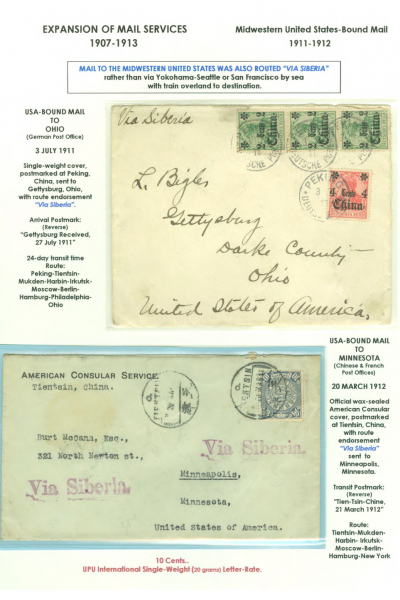 EXPANSION OF MAIL SERVICES
1907-1913
Midwestern United States-Bound Mail
1911-1912
MAIL TO THE MIDWESTERN UNITED STATES WAS ALSO ROUTED "VIA SIBERIA"
rather than via Yokohama-Seattle or San Francisco by sea
with train overland to destination.
USA-BOUND MAIL
TO
OHIO
(German Post Office)
3 JULY 1911
Single-weight cover,
postmarked at Peking,
China, sent to
Gettysburg, Ohio,
with route endorsement
"Via Siberia".
Arrival Postmark:
(Reverse)
"Gettysburg Received,
27 July 1911"
24-day transit time
Route:
Peking-Tientsin-
Mukden-Harbin-Irkutsk-
Moscow-Berlin-
Hamburg-Philadelphia-
Ohio
Via Siberia
2 Cents 2
China
2 Cents 2
China
2 Cents 2
China
DEUTSCHE POST
PEKING
4 Cents 4
China
L. Bigler
Gettysburg
Darke County
Ohio
United States of America.
USA-BOUND MAIL
TO
MINNESOTA
(Chinese & French
Post Offices)
20 MARCH 1912
Official wax-sealed
American Consular
cover, postmarked
at Tientsin, China,
with route
endorsement
"Via Siberia"
sent to
Minneapolis,
Minnesota.
Transit Postmark:
(Reverse)
"Tien-Tsin-Chine,
21 March 1912"
Route:
Tientsin-Mukden-
Harbin- Irkutsk-
Moscow-Berlin-
Hamburg-New York
AMERICAN CONSULAR SERVICE
Tientsin, China.
TIENTSIN
TIENTSIN
Burt McCann, Esq.,
321 North Newton st.,
Via Siberia.
Minneapolis,
Via Siberia.
Minnesota,
United States of America.
10 Cents..
UPU International Single-Weight (20 grams) Letter-Rate.